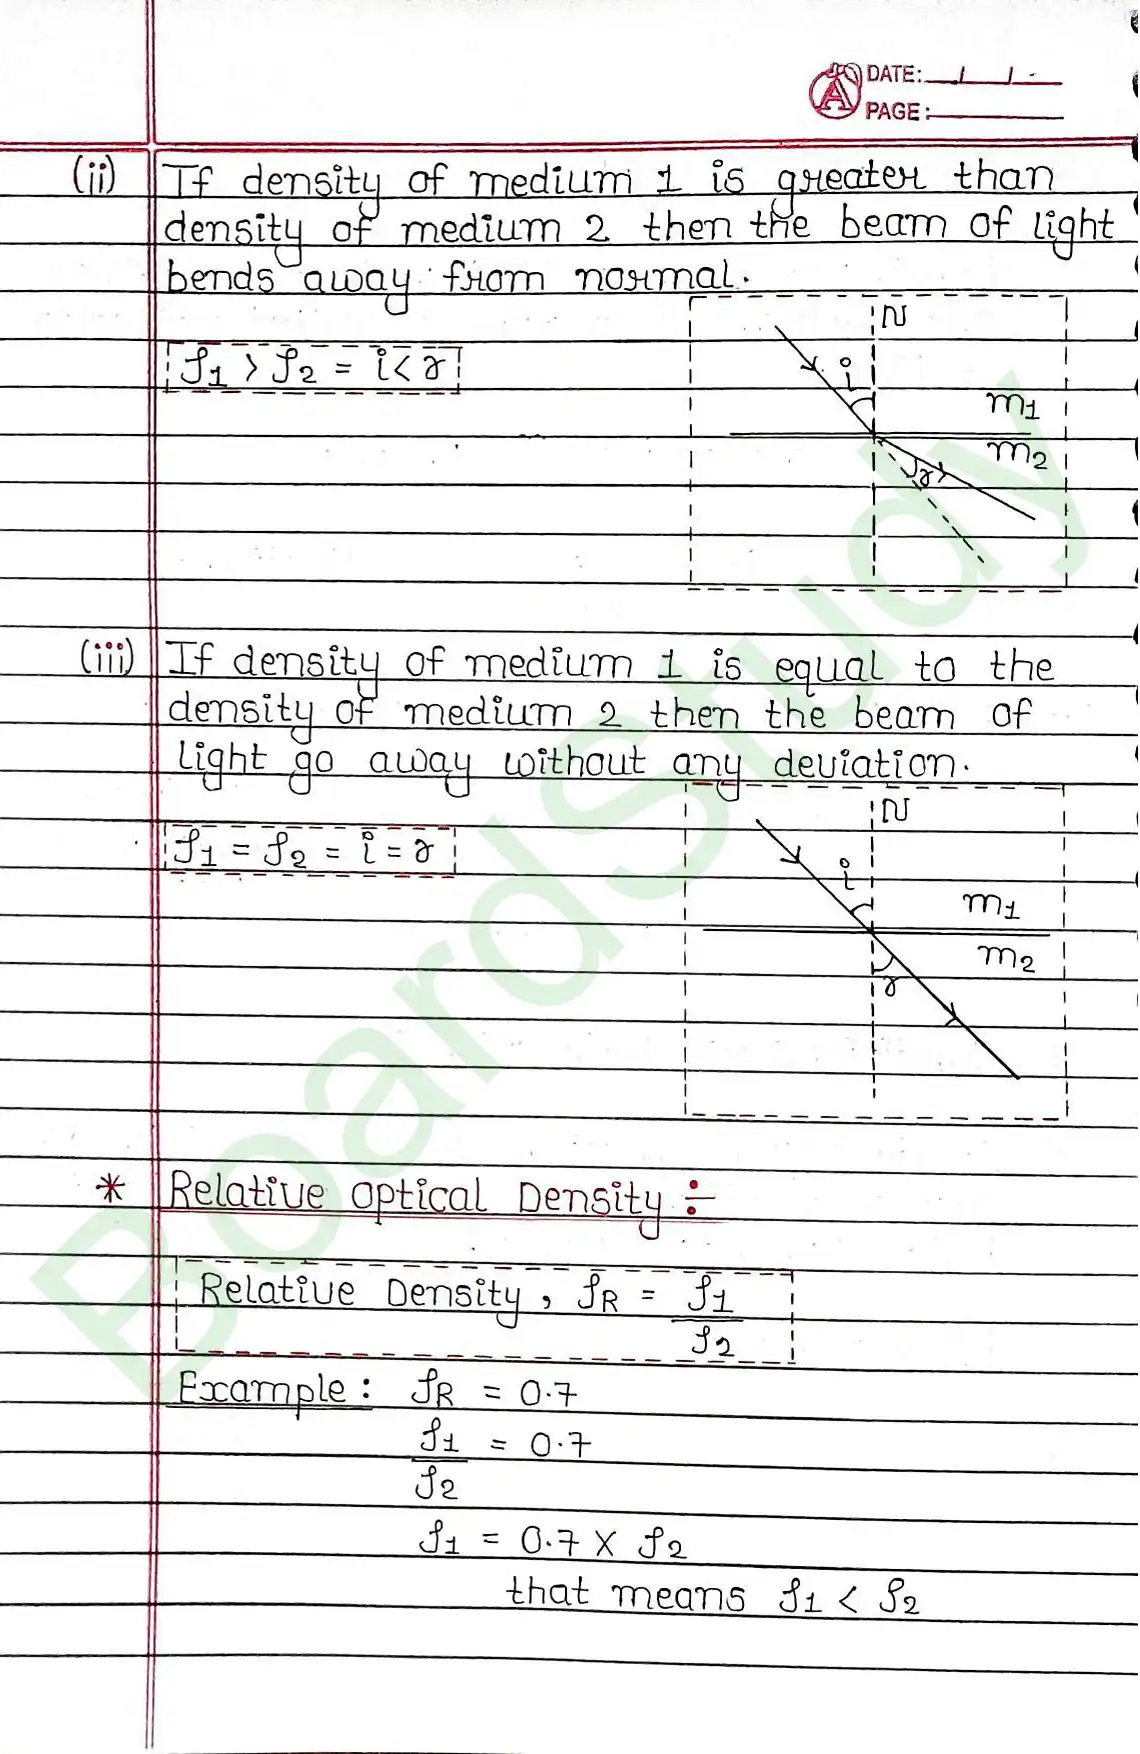 DATE:
PAGE:
(ii) If density of medium 1 is greater than
density of medium 2 then the beam of light
bends away from normal.
ρ1 > ρ2 = i < r
N
i
m1
m2
r
(iii) If density of medium 1 is equal to the
density of medium 2 then the beam of
light go away without any deviation.
ρ1 = ρ2 = i = r
N
i
m1
m2
r
* Relative Optical Density ÷
Relative Density, ρR = ρ1
ρ2
Example: ρR = 0.7
ρ1 = 0.7
ρ2
ρ1 = 0.7 X ρ2
that means ρ1 < ρ2
BoardStudy